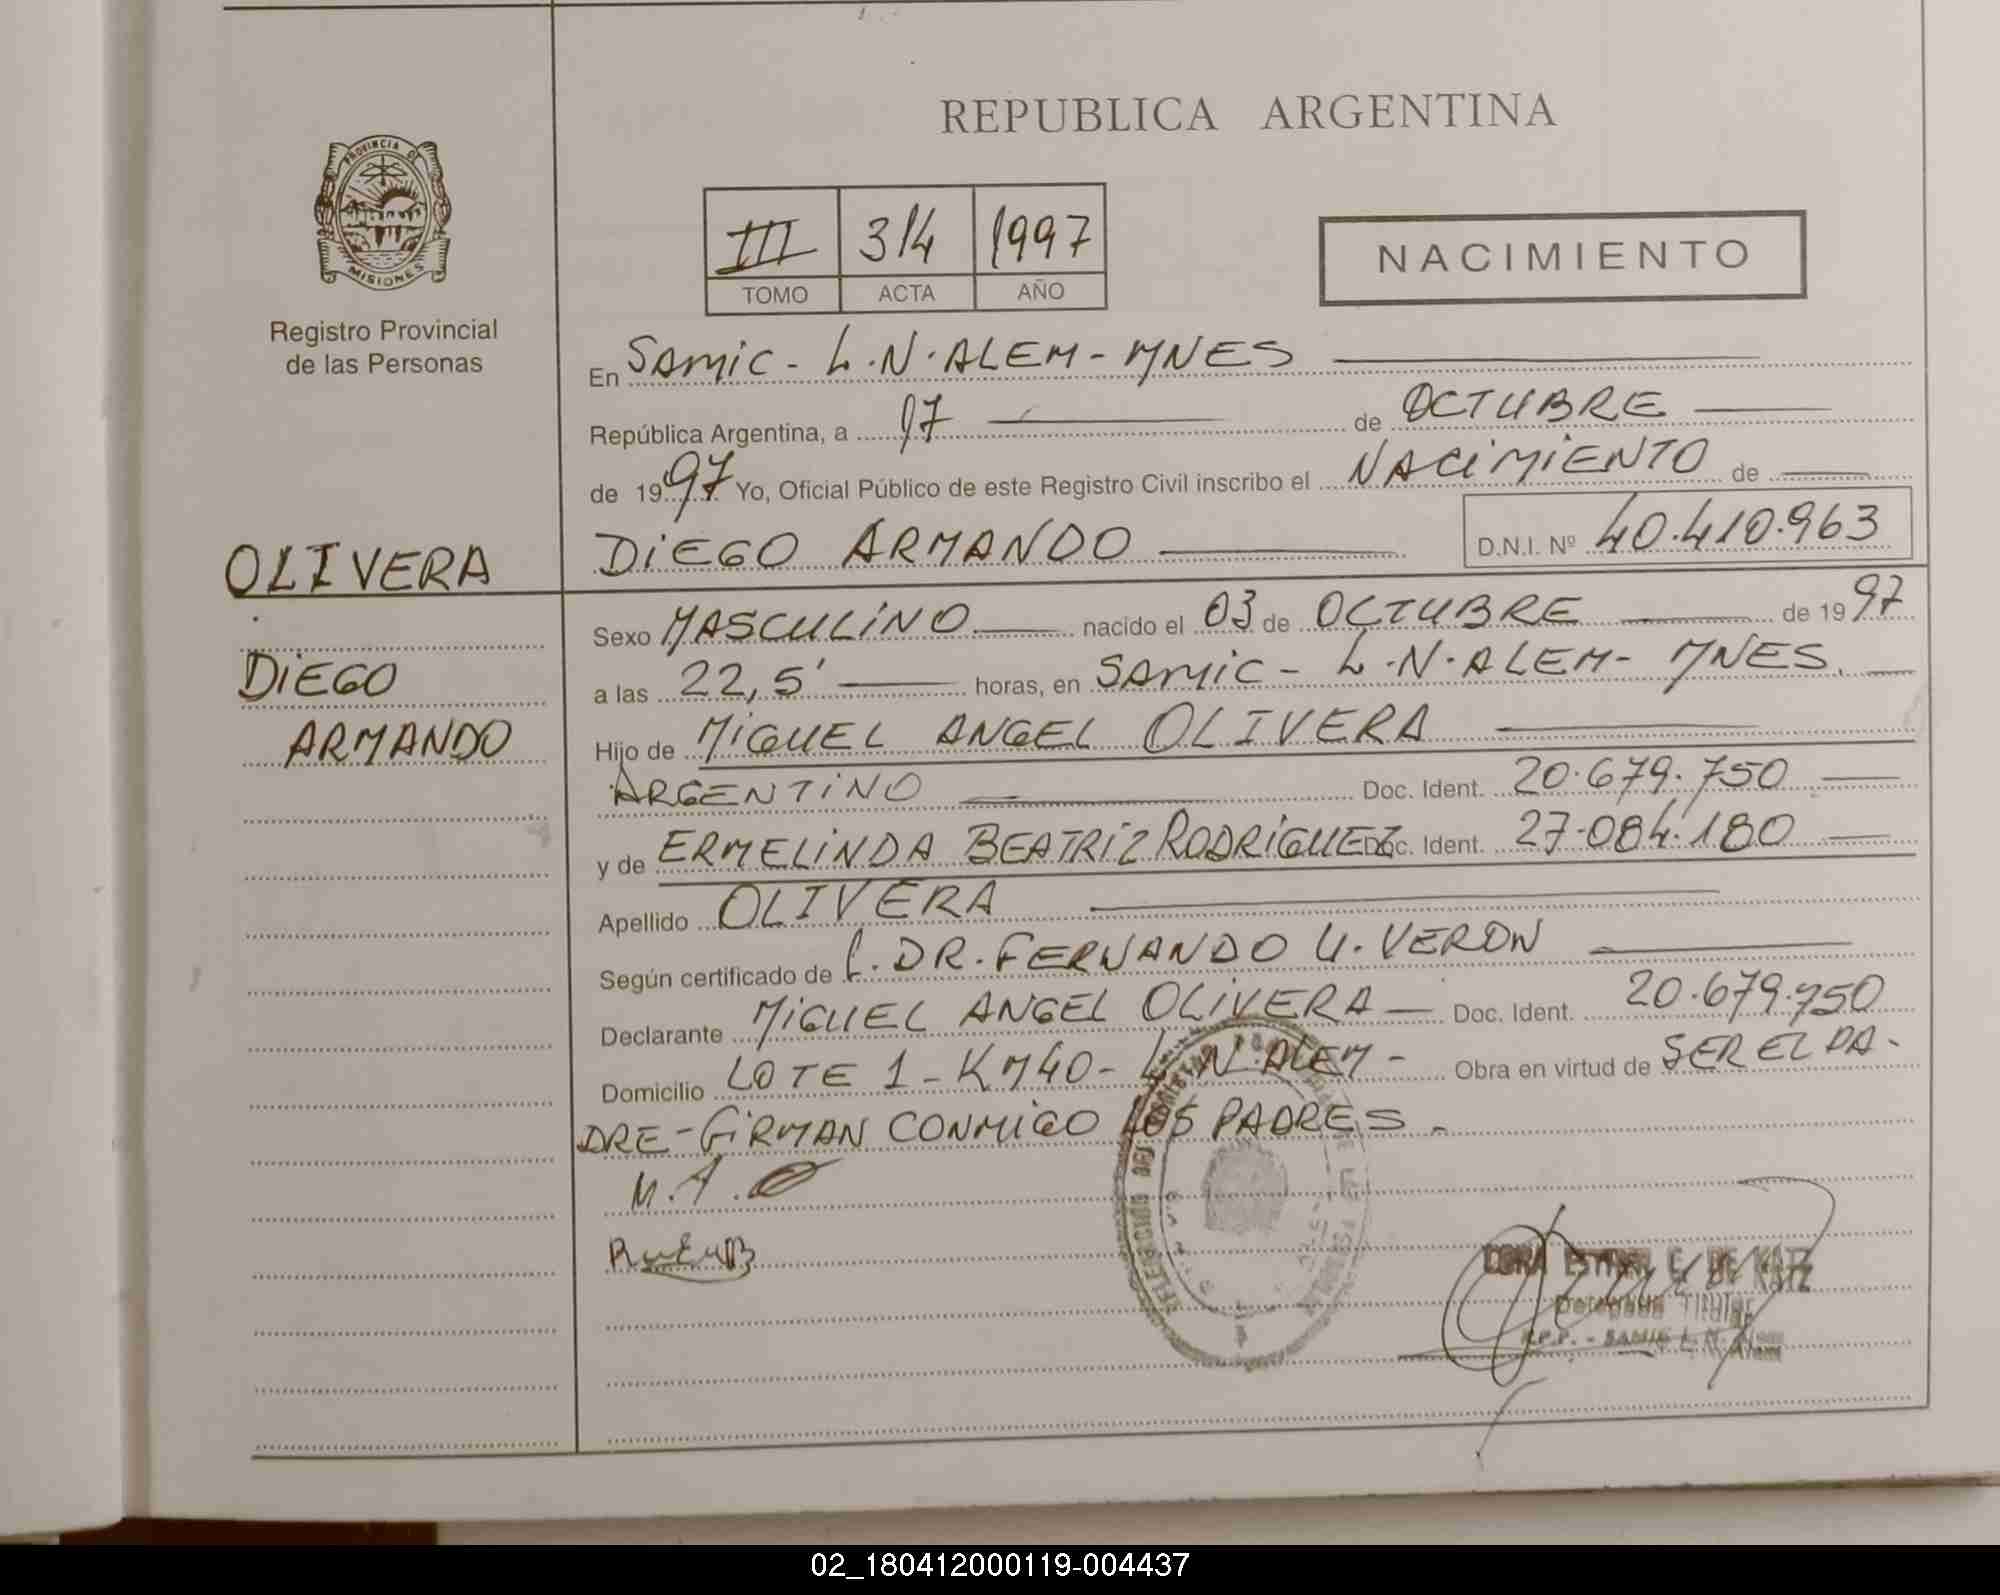 REPUBLICA ARGENTINA
PROVINCIA DE
MISIONES
Registro Provincial
de las Personas
III 314 1997
TOMO ACTA AÑO
NACIMIENTO
En SAMIC - L.N.ALEM - MNES
República Argentina, a 07 de OCTUBRE
de 1997 Yo, Oficial Público de este Registro Civil inscribo el NACIMIENTO de
DIEGO ARMANDO D.N.I. Nº 40.410.963
OLIVERA
DIEGO
ARMANDO
Sexo MASCULINO nacido el 03 de OCTUBRE de 1997
a las 22,5' horas, en SAMIC - L.N.ALEM - MNES.
Hijo de MIGUEL ANGEL OLIVERA
ARGENTINO Doc. Ident. 20.679.750
y de ERMELINDA BEATRIZ RODRÍGUEZ Doc. Ident. 27.084.180
Apellido OLIVERA
Según certificado de DR. FERNANDO U. VERON
Declarante MIGUEL ANGEL OLIVERA Doc. Ident. 20.679.750
Domicilio LOTE 1 - KM40 - L.N.ALEM - Obra en virtud de SER EL PA-
DRE - FIRMAN CONMIGO LOS PADRES.
M.A.O
DORA ESTHER E. DE KATZ
Delegada Titular
R.P.P. - SAMIC L.N. Alem
02_180412000119-004437